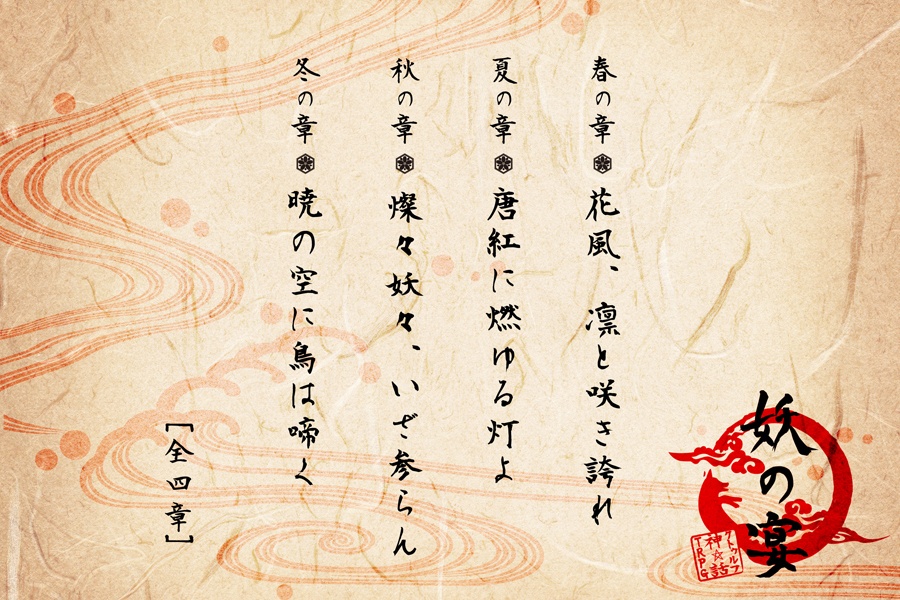 春の章 花風、凛と咲き誇れ
夏の章 唐紅に燃ゆる灯よ
秋の章 燦々妖々、いざ参らん
冬の章 暁の空に鳥は啼く
[全四章]
妖の宴
クトゥルフ
神☆話
TRPG